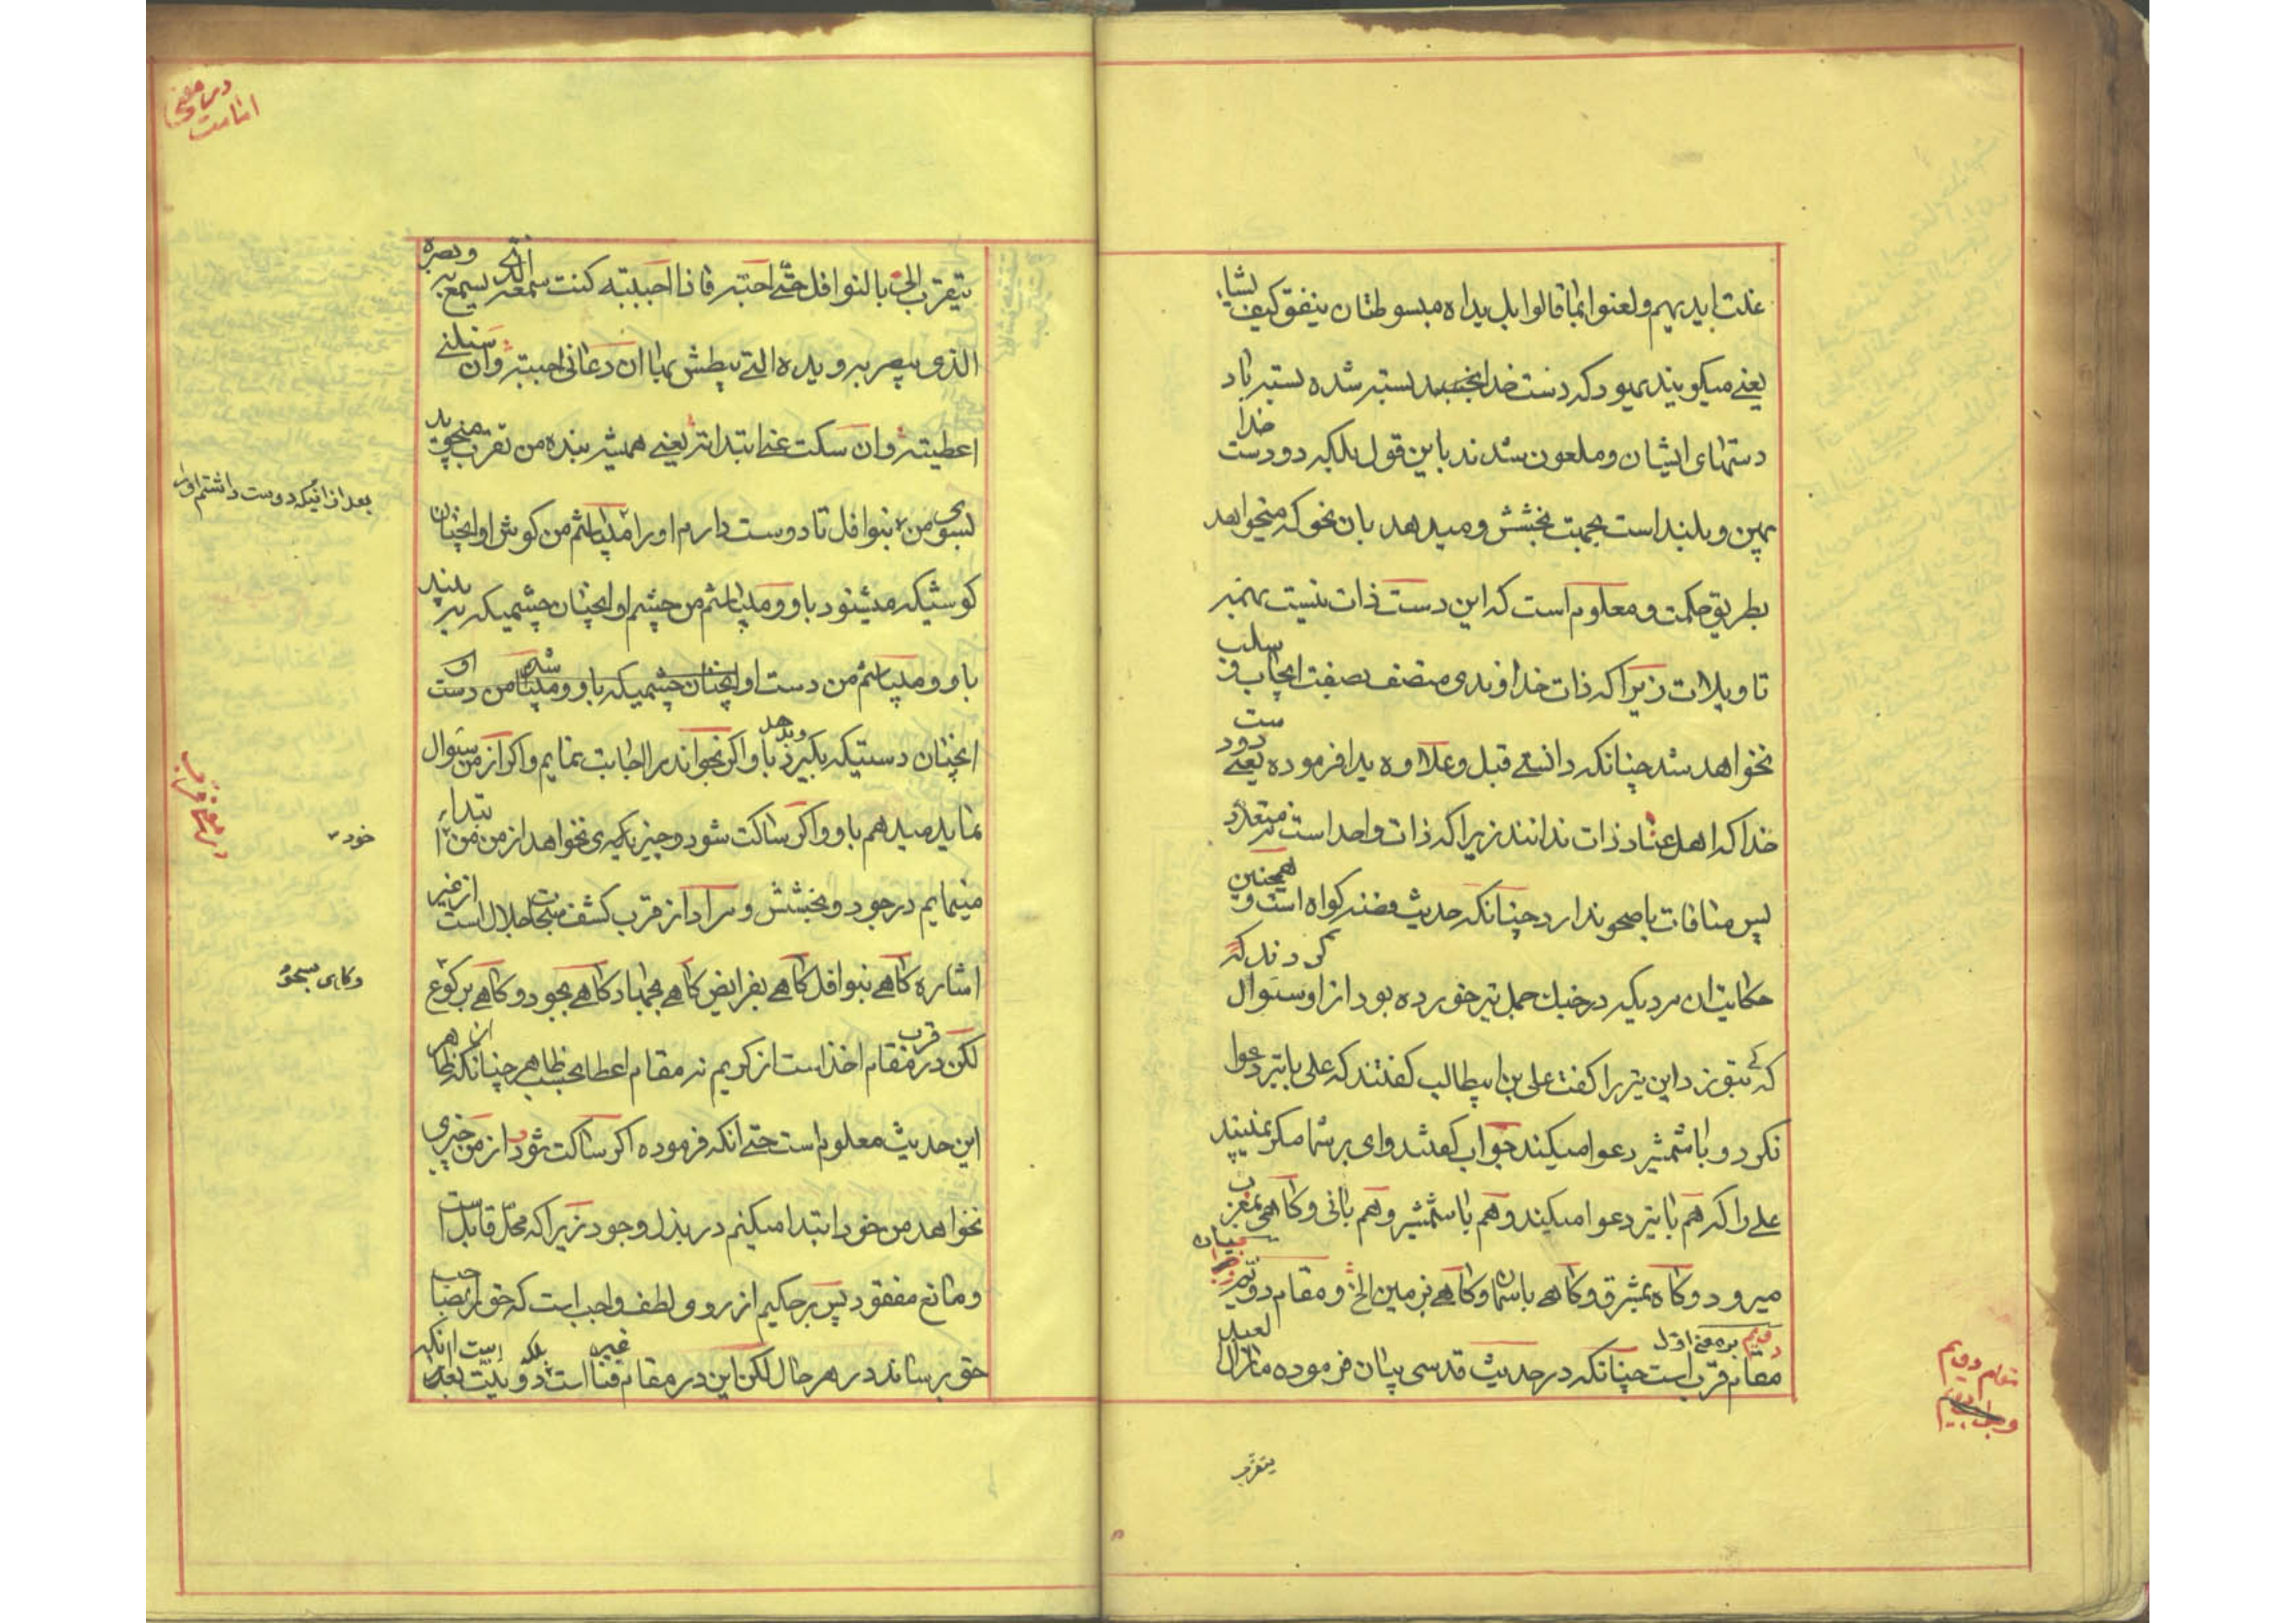 غلت ایدیهم و لعنوا بما قالوا بل یداه مبسوطتان ینفق کیف یشاء
یعنی میکویند یهود که دست خدا بسته شده بسته باد
دستهای ایشان و ملعون شدند باین قول بلکه دو دست خدا
پهن و بلند است بجهت بخشش و میدهد بان نحو که میخواهد
بطریق حکمت و معلوم است که این دست ذات نیست بهمه
تاویلات زیرا که ذات خداوندی متصف بصفت ایجاب و سلب
نخواهد شد چنانکه دانستی قبل و علاوه یدا فرموده یعنی دو دست
خدا که اهل عناد ذات ندانند زیرا که ذات واحد است نه متعدد
پس منافات با صحو ندارد چنانکه حدیث فضه کواه است و همچنین
حکایت ان مردیکه در جنک جمل تیر خورده بود از او سئوال کردند که
که بتو زد این تیر را کفت علی بن ابیطالب کفتند که علی با تیر دعوا
نکرد و با شمشیر دعوا میکند جواب کفت وای بر شما مکر نمیبینید
علی را که هم با تیر دعوا میکند و هم با شمشیر و هم بانی و کاهی بمغرب
میرود و کاه بمشرق و کاهی باسمان و کاهی بزمین الخ و مقام دویم
مقام قرب است چنانکه در حدیث قدسی بیان فرموده مازال العبد
دویم بر معنی اول
بیان
مقام دویم
یتقرب
در معنی
امامت
یتقرب الی بالنوافل حتی احبه فاذا احببته کنت سمعه الذی یسمع به و بصره
الذی یبصر به و یده التی یبطش بها ان دعانی اجبته و ان سئلنی
اعطیته و ان سکت عنی ابتداته یعنی همیشه بنده من تقرب میجوید
بسوی من بنوافل تا دوست دارم او را میباشم من کوش او انچنان
بعد از انیکه دوست داشتم او را
کوشیکه میشنود باو و میباشم من چشم او انچنان چشمیکه می بیند
باو و میباشم من دست او انچنان چشمیکه باو و میباشم من دست او
انچنان دستیکه بکیرد باو و اکر بخواند مرا اجابت نمایم و اکر از من سئوال
نماید میدهم باو و اکر ساکت شود و چیزی نخواهد از من من ابتداء
خود
مینمایم در جود و بخشش و مراد از قرب کشف سبحات جلال است از غیر
اشاره کاهی بنوافل کاهی بفرایض کاهی بجهاد کاهی بجود و کاهی برکوع
و کاهی بسجود
لکن در مقام قرب اخذ است از کریم نه مقام اعطا بحسب ظاهر چنانکه از ظاهر
این حدیث معلوم است حتی انکه فرموده اکر ساکت شود از من چیزی
نخواهد من خود ابتدا میکنم در بذل وجود زیرا که محل قابل است
و مانع مفقود پس بر حکیم از روی لطف واجب است که حق را بصاحب
حق برساند در هر حال لکن این در مقام فنا است